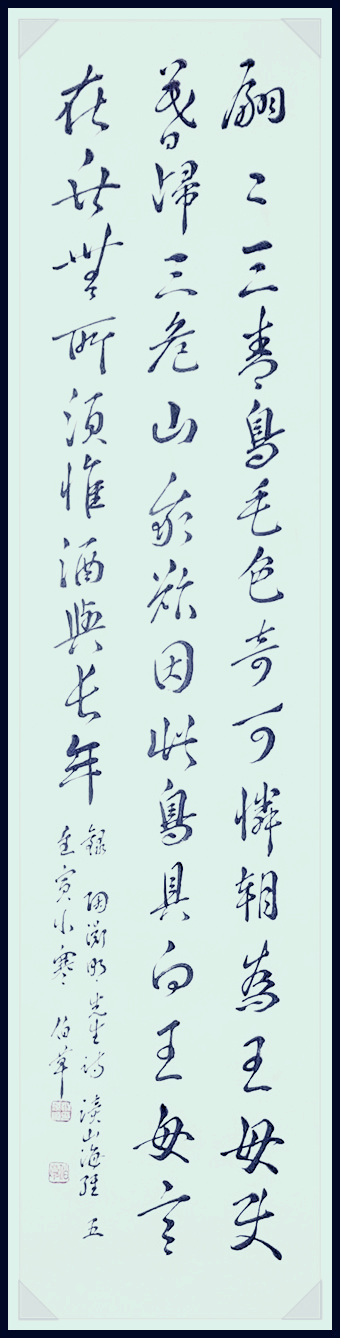 翩〻三青鳥毛色奇可憐朝為王母使
暮歸三危山我欲因此鳥具向王母言
在世無所須惟酒與长年
錄陶淵明先生詩讀山海經 五
寅小寒 伯華